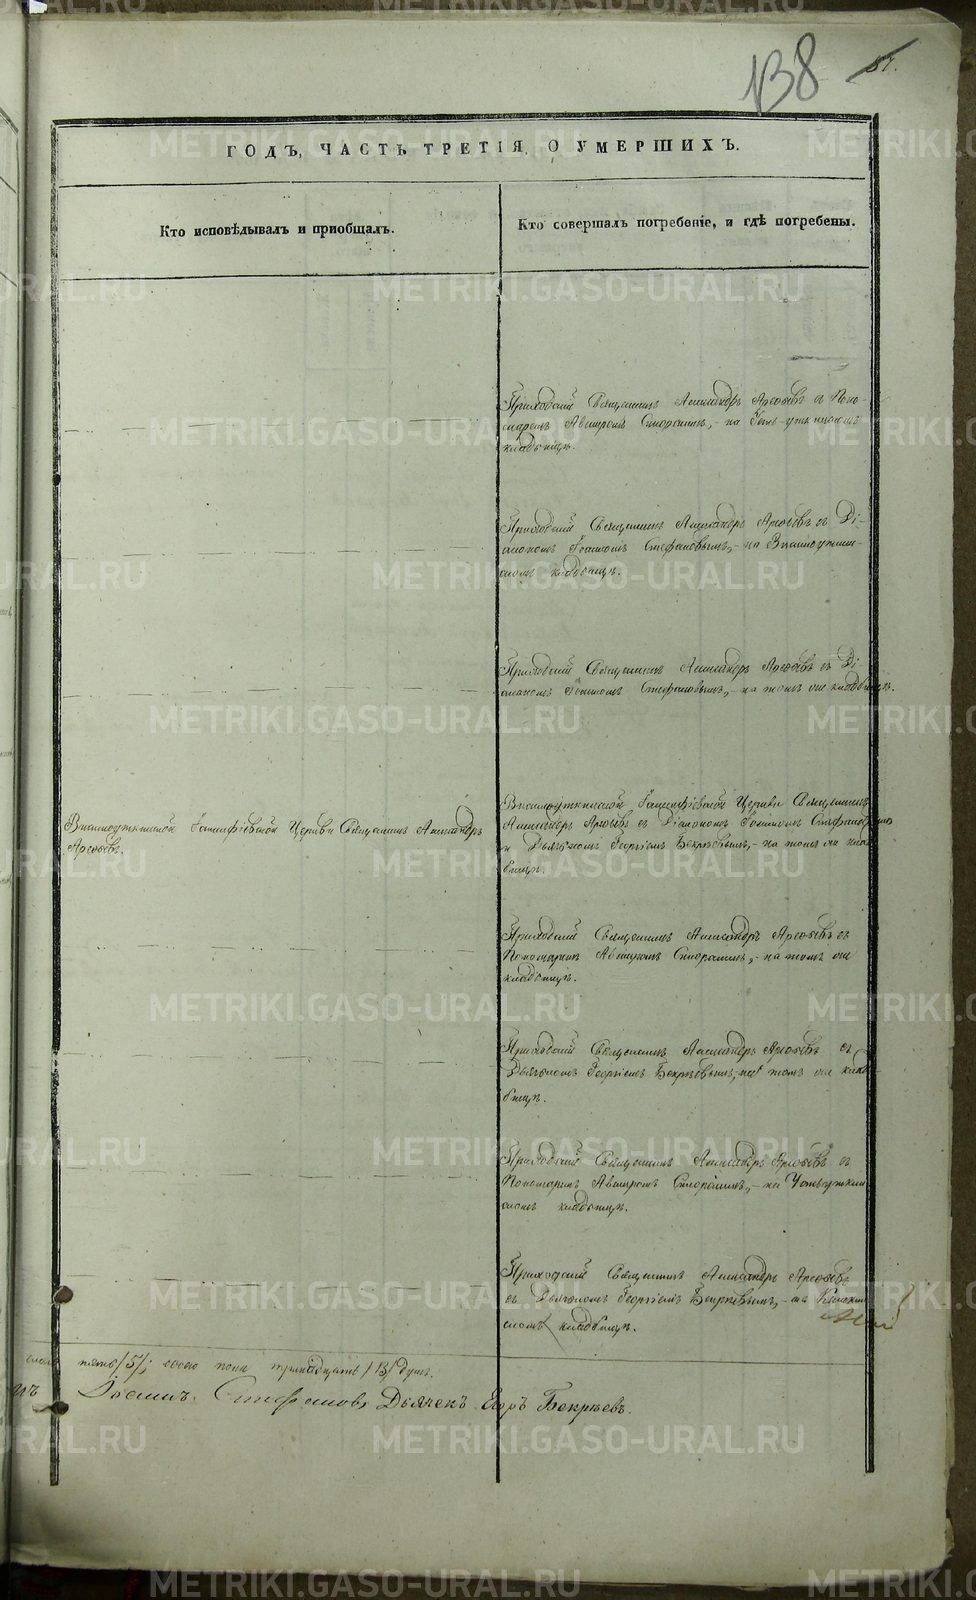 138
57.
ГОДЪ, ЧАСТЬ ТРЕТІЯ, О УМЕРШИХЪ.
Кто исповѣдывалъ и пріобщалъ.
Кто совершалъ погребеніе, и гдѣ погребены.
Приходскій Священникъ Александръ Арефьевъ съ Поно-
маремъ Авениромъ, - на
кладбищѣ.
Приходскій Священникъ Александръ Арефьевъ съ Ді-
акономъ Іоанномъ Стефановымъ, - на Висимоуткин-
скомъ кладбищѣ.
Приходскій Священникъ Александръ Арефьевъ съ Ді-
акономъ Іоанномъ Стефановымъ, - на томъ же кладбищѣ.
Висимоуткинской Церкви Священникъ Александръ
Арефьевъ.
Висимоуткинской Церкви Священникъ
Александръ Арефьевъ съ Діакономъ Іоанномъ Стефановымъ
и Дьячкомъ Георгіемъ Бекрѣевымъ, - на томъ же клад-
бищѣ.
Приходскій Священникъ Александръ Арефьевъ съ
Пономаремъ, - на томъ же
кладбищѣ.
Приходскій Священникъ Александръ Арефьевъ съ
Дьячкомъ Георгіемъ Бекрѣевымъ, на томъ же клад-
бищѣ.
Приходскій Священникъ Александръ Арефьевъ съ
Пономаремъ, - на
кладбищѣ.
Приходскій Священникъ Александръ Арефьевъ
съ Дьячкомъ Георгіемъ Бекрѣевымъ, - на
кладбищѣ.
пять /5/; обоего пола тринадцать /13/ душъ.
Іоаннъ Стефановъ, Дьячекъ Егоръ Бекрѣевъ.
METRIKI.GASO-URAL.RU